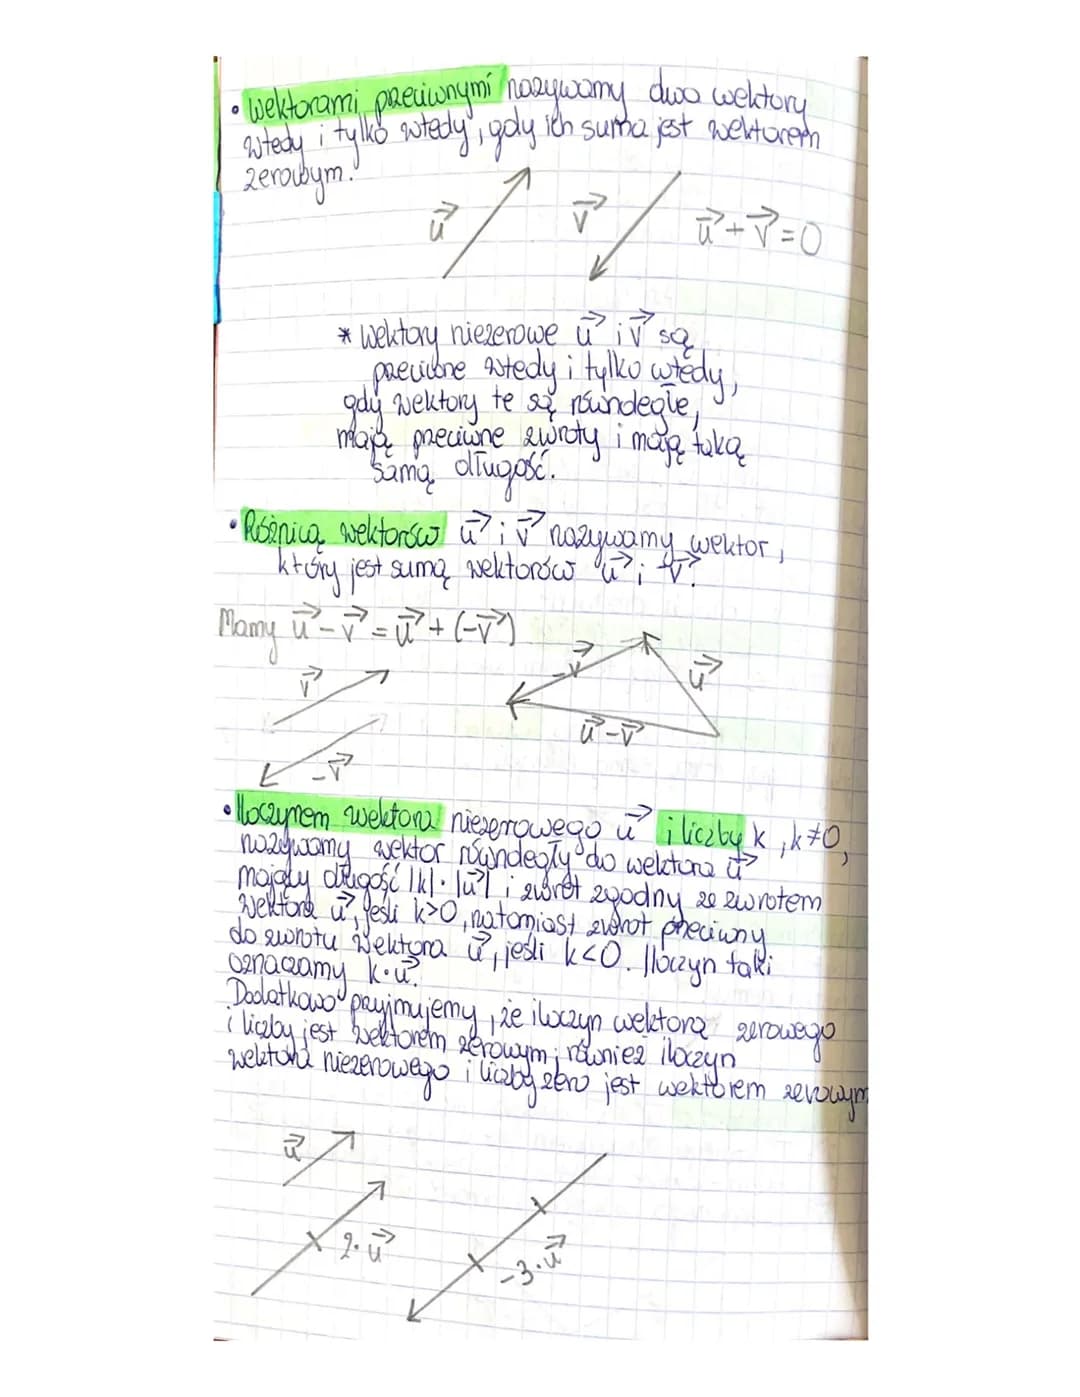 • Wektorami przeciwnymi nazywamy dwa wektory
wtedy i tylko wtedy, gdy ich suma jest wektorem
zerowym.
u→ v→ u→ + v→ = 0
* Wektory niezerowe u→ i v→ są
przeciwne wtedy i tylko wtedy,
gdy wektory te są równoległe,
mają przeciwne zwroty i mają taką
samą długość.
• Różnicą wektorów u→ i v→ nazywamy wektor,
który jest sumą wektorów u→ i v→.
Mamy u→ - v→ = u→ + (-v→)
v→ -v→ u→
u→ - v→
-v→
• Iloczynem wektora niezerowego u→ i liczby k, k≠0,
nazywamy wektor równoległy do wektora u→
mający długość |k|·|u→| i zwrot zgodny ze zwrotem
wektora u→, jeśli k>0, natomiast zwrot przeciwny
do zwrotu wektora u→, jeśli k<0. Iloczyn taki
oznaczamy k·u→.
Dodatkowo przyjmujemy, że iloczyn wektora zerowego
i liczby jest wektorem zerowym; również iloczyn
wektora niezerowego i liczby zero jest wektorem zerowym
u→
2·u→ -3·u→